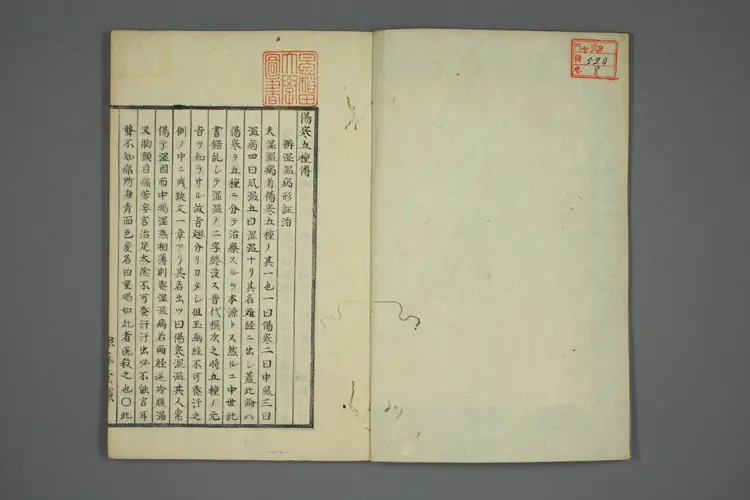 傷寒五種傳
辨湿溫病形証治
夫湿溫病者傷寒五種ノ其一也一曰傷寒二曰中風三曰
溫病四曰風溫五曰湿溫ナリ其名難經ニ出シ蓋此論ハ
傷寒ヲ五種ニ分テ治療スルヲ本源トス然ルニ中世此
書錯乱シテ湿溫ノ二字終沒ス晋代撰次之時五種ノ元
旨ヲ知ラサル故旨趣分リカタシ但玉函經不可發汗之
例ノ中ニ残缺文一章アリ其名出ツ曰傷寒湿溫其人常
傷于湿因而中暍湿熱相薄則發湿溫病若両脛逆冷腹滿
又胸頭目痛苦妄言治足太陰不可發汗汗出必不能言耳
聾不知痛所身青面色変名曰重暍如此者医殺之也〇此
早稲田大學圖書
590
8